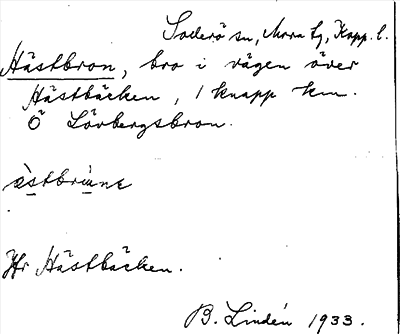 Soderö sn, Morra tg, Kopp. l.
Hästbron, bro i vägen över
Hästbäcken, 1 knapp km.
Ö Lövbergsbron.
Jfr Hästbäcken.
B. Lindén 1933.